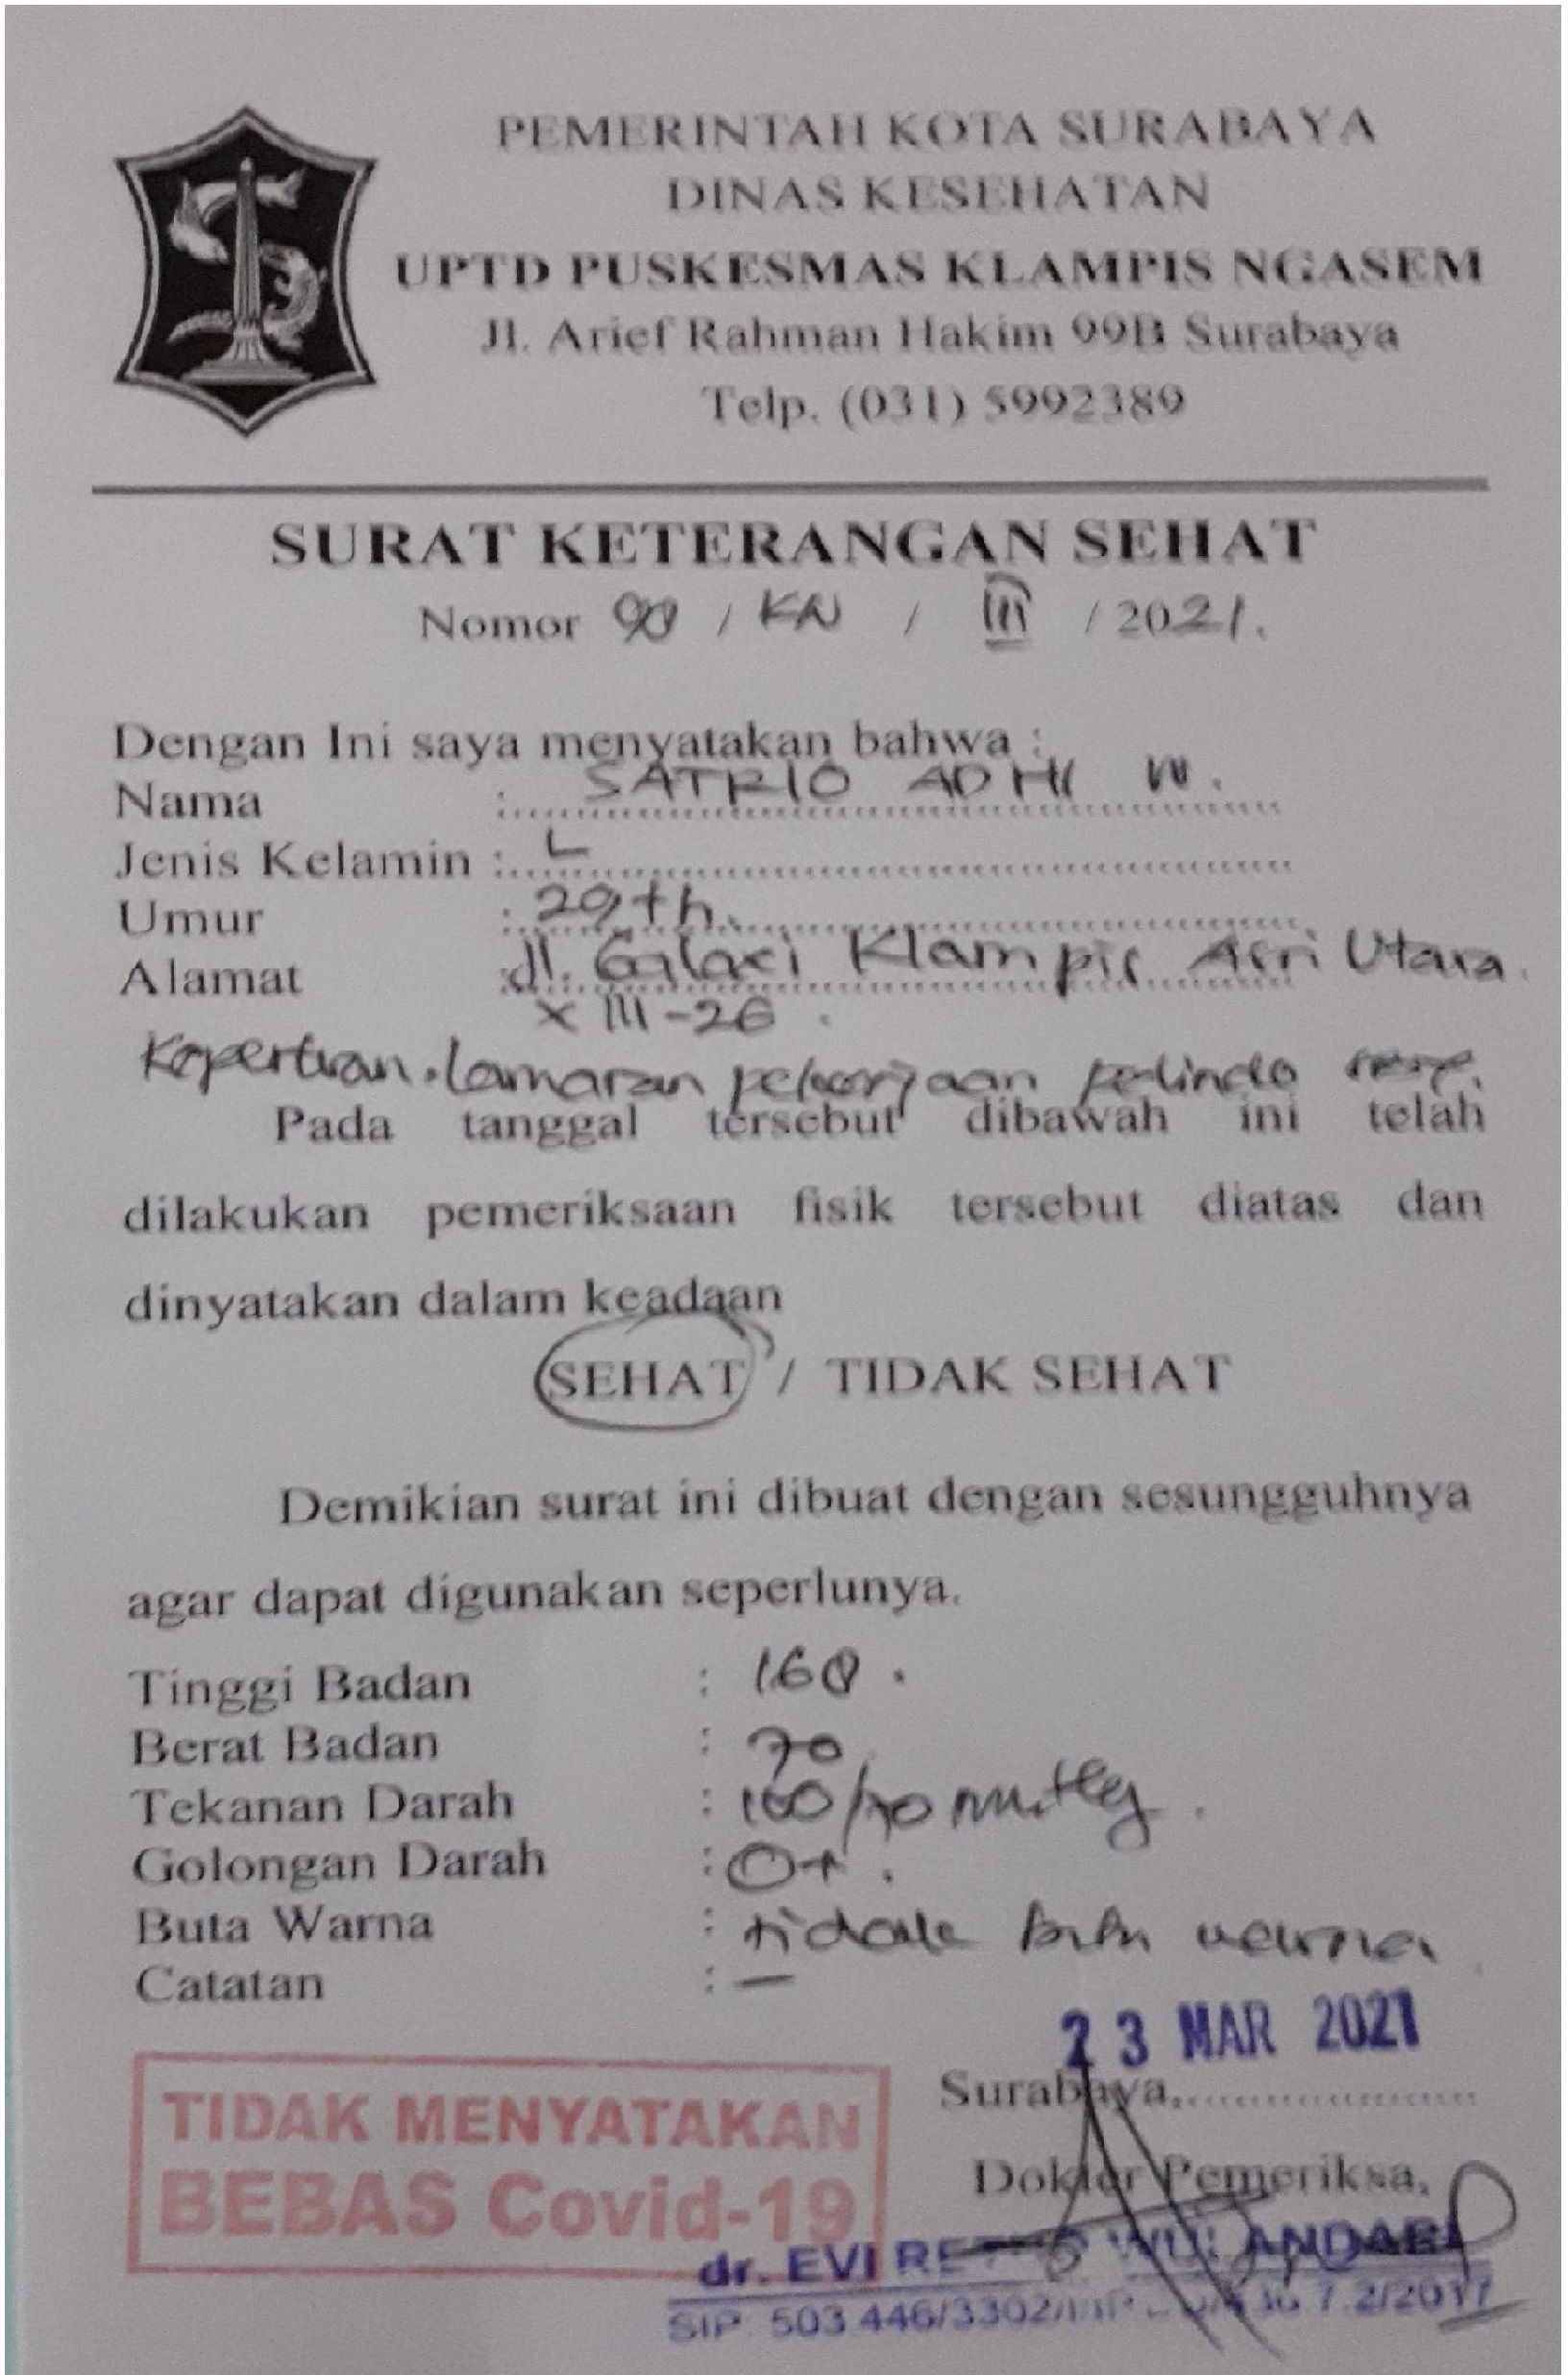 PEMERINTAH KOTA SURABAYA
DINAS KESEHATAN
UPTD PUSKESMAS KLAMPIS NGASEM
Jl. Arief Rahman Hakim 99B Surabaya
Telp. (031) 5992389
SURAT KETERANGAN SEHAT
Nomor / KN / III / 2021.
Dengan Ini saya menyatakan bahwa :
Nama : SATRIO ADHI W.
Jenis Kelamin : L
Umur : 29 th.
Alamat : Jl. Galaxi Klampis Asri Utara
XIII-26.
Keperluan. lamaran pekerjaan pelindo
Pada tanggal tersebut dibawah ini telah
dilakukan pemeriksaan fisik tersebut diatas dan
dinyatakan dalam keadaan
SEHAT / TIDAK SEHAT
Demikian surat ini dibuat dengan sesungguhnya
agar dapat digunakan seperlunya.
Tinggi Badan :
Berat Badan : 70
Tekanan Darah : /70 mmHg.
Golongan Darah : O+.
Buta Warna : tidak buta warna
Catatan : –
23 MAR 2021
Surabaya,
TIDAK MENYATAKAN
BEBAS Covid-19
Dokter Pemeriksa,
dr. EVI RETNO WULANDARI
SIP. 503.446/3302/